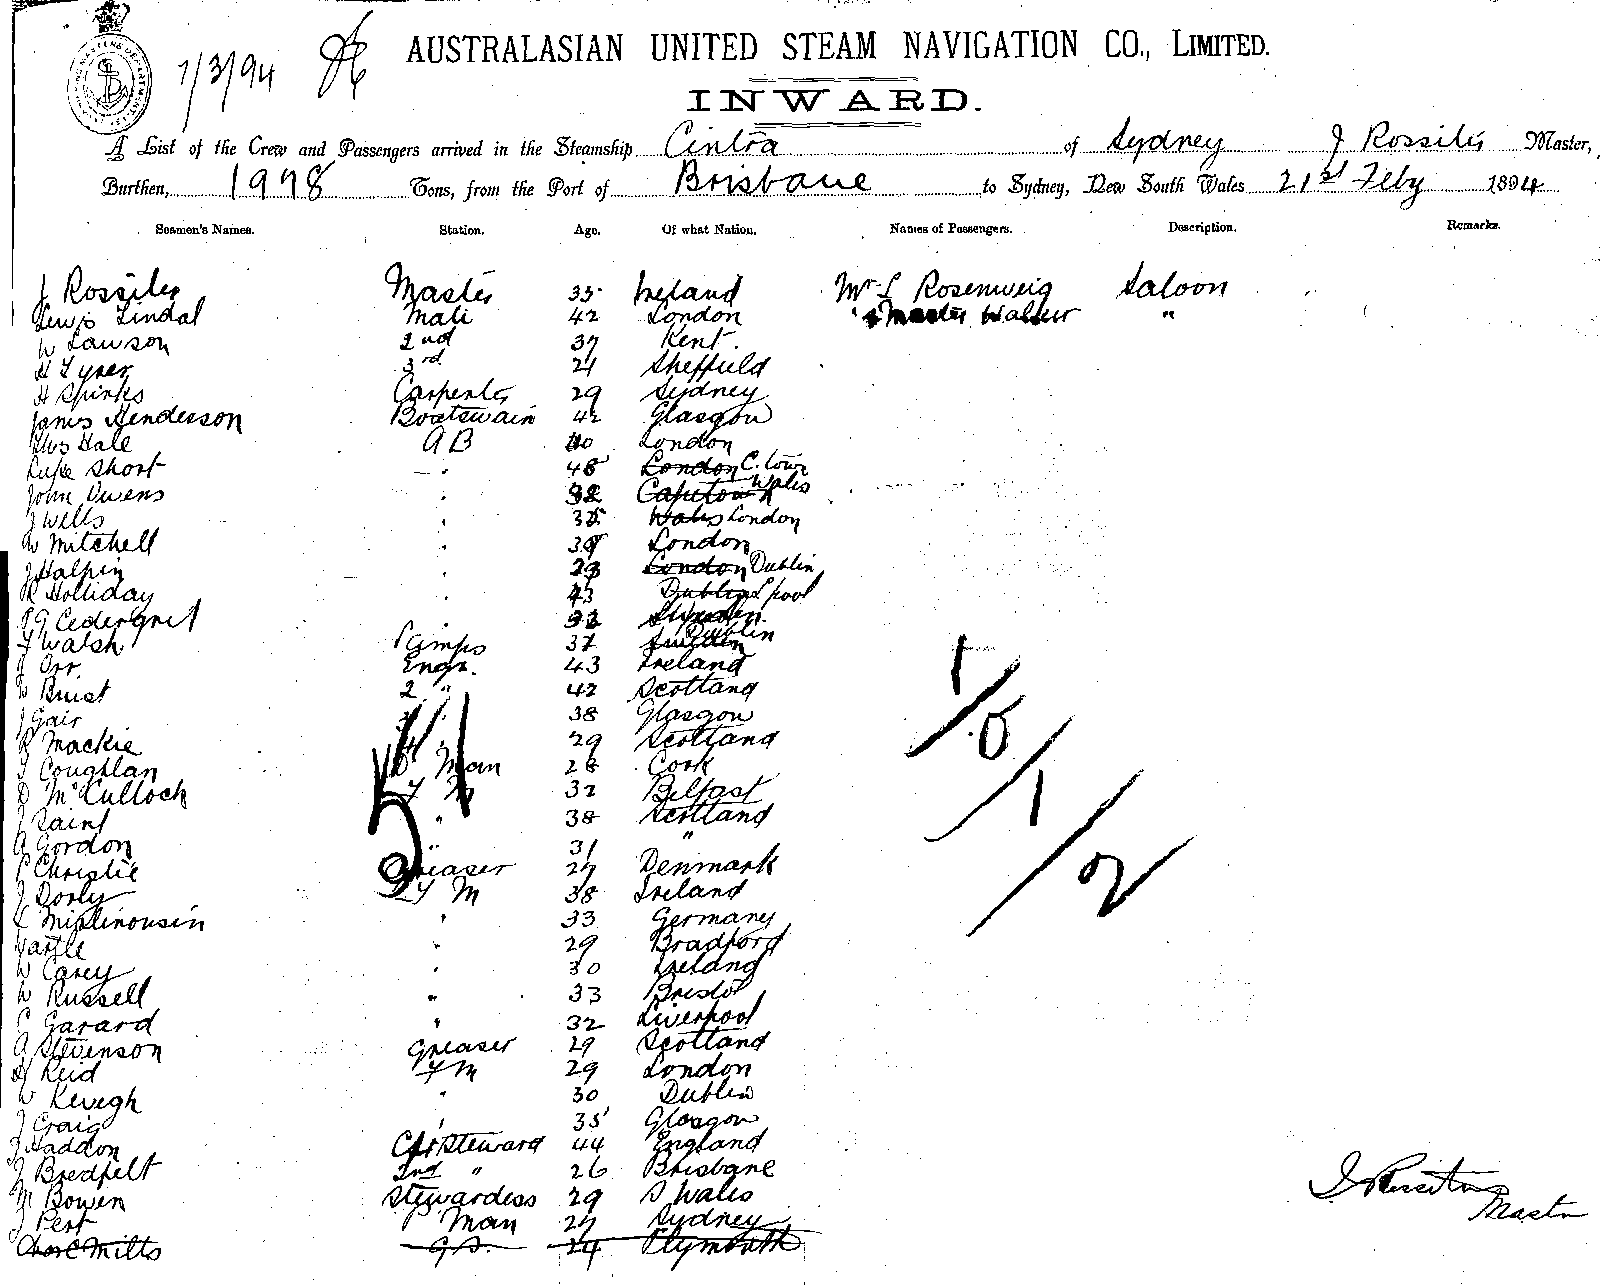 7/3/94
AUSTRALASIAN UNITED STEAM NAVIGATION CO., LIMITED.
INWARD.
A List of the Crew and Passengers arrived in the Steamship Cintra of Sydney J Rossiter Master,
Burthen, 1978 Tons, from the Port of Brisbane to Sydney, New South Wales 21st Feby 1894
Seamen's Names. Station. Age. Of what Nation. Names of Passengers. Description. Remarks.
J Rossiter Master 35 Ireland Mr L Rosenweig Saloon
Lewis Lindal Mate 42 London " & Master Walter "
W Lawson 2nd 37 Kent
H Tyrer 3rd 24 Sheffield
H Spinks Carpenter 29 Sydney
James Henderson Boatswain 42 Glasgow
Hale AB 40 London
Luke Short 48 London C. town
John Owens 32 Capetown Wales
J Wells 35 Wales London
W Mitchell 39 London
J Halpin 23 London Dublin
R Holliday 43 Dublin L'pool
Cedergrist 33 Sweden
Walsh Lamps 37 Sweden Dublin
J Orr Engr. 43 Ireland
W Buist 2 " 42 Scotland
J Gair 38 Glasgow
R Mackie 29 Scotland
J Coughlan Man 28 Cork
D McCulloch F M 32 Belfast
J Saint " 38 Scotland
A Gordon " 31 "
P Christie Greaser 27 Denmark
J Dorly F M 38 Ireland
Mislinousin " 33 Germany
Yartle " 29 Bradford
W Carey " 30 Ireland
W Russell " 33 Bristol
C Garard " 32 Liverpool
A Stevenson Greaser 29 Scotland
D Reid F M 29 London
W Kevegh " 30 Dublin
J Craig " 35 Glasgow
J Haddon Ch Steward 44 England
J Bredfelt 2nd " 26 Brisbane
M Bowen Stewardess 29 S Wales
J Pert P Man 27 Sydney
Chas E Mills G.S. 24 Plymouth
1/0/1/2
J Rossiter
Master